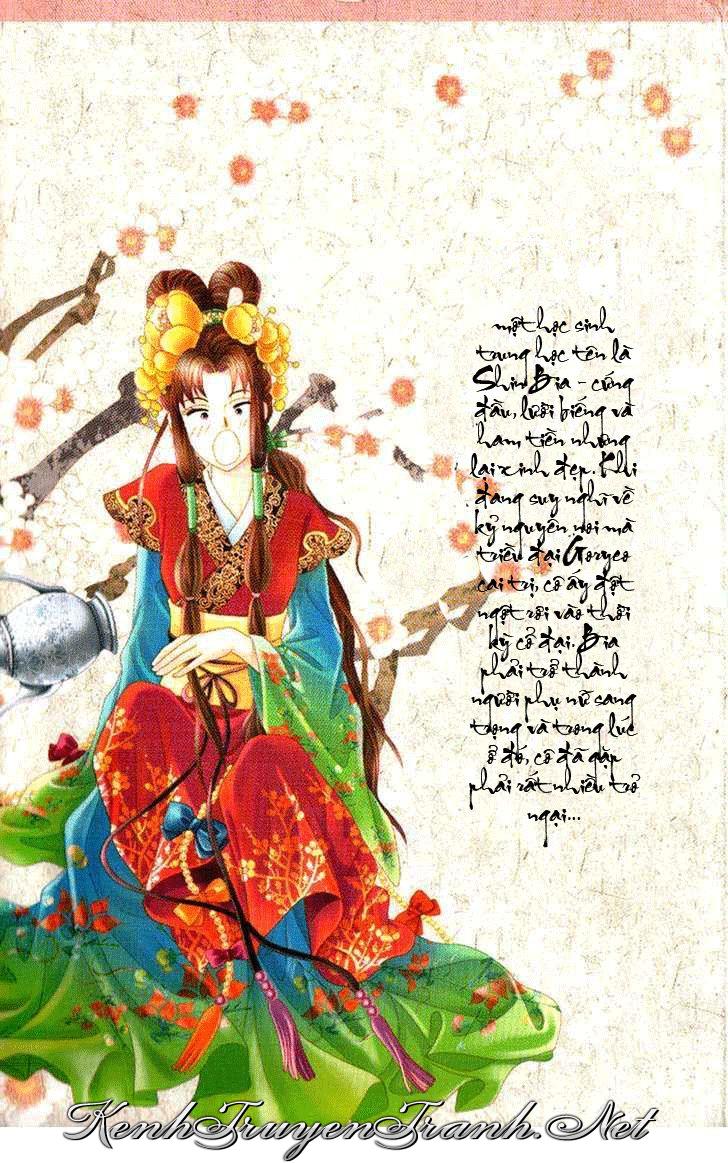 một học sinh
trung học tên là
Shin Bia - cứng
đầu, lười biếng và
ham tiền nhưng
lại xinh đẹp. Khi
đang suy nghĩ về
kỷ nguyên nơi mà
triều đại Goryeo
cai trị, cô ấy đột
ngột rơi vào thời
kỳ cổ đại. Bia
phải trở thành
người phụ nữ sang
trọng và trong lúc
ở đó, cô đã gặp
phải rất nhiều trở
ngại...
KenhTruyenTranh.Net